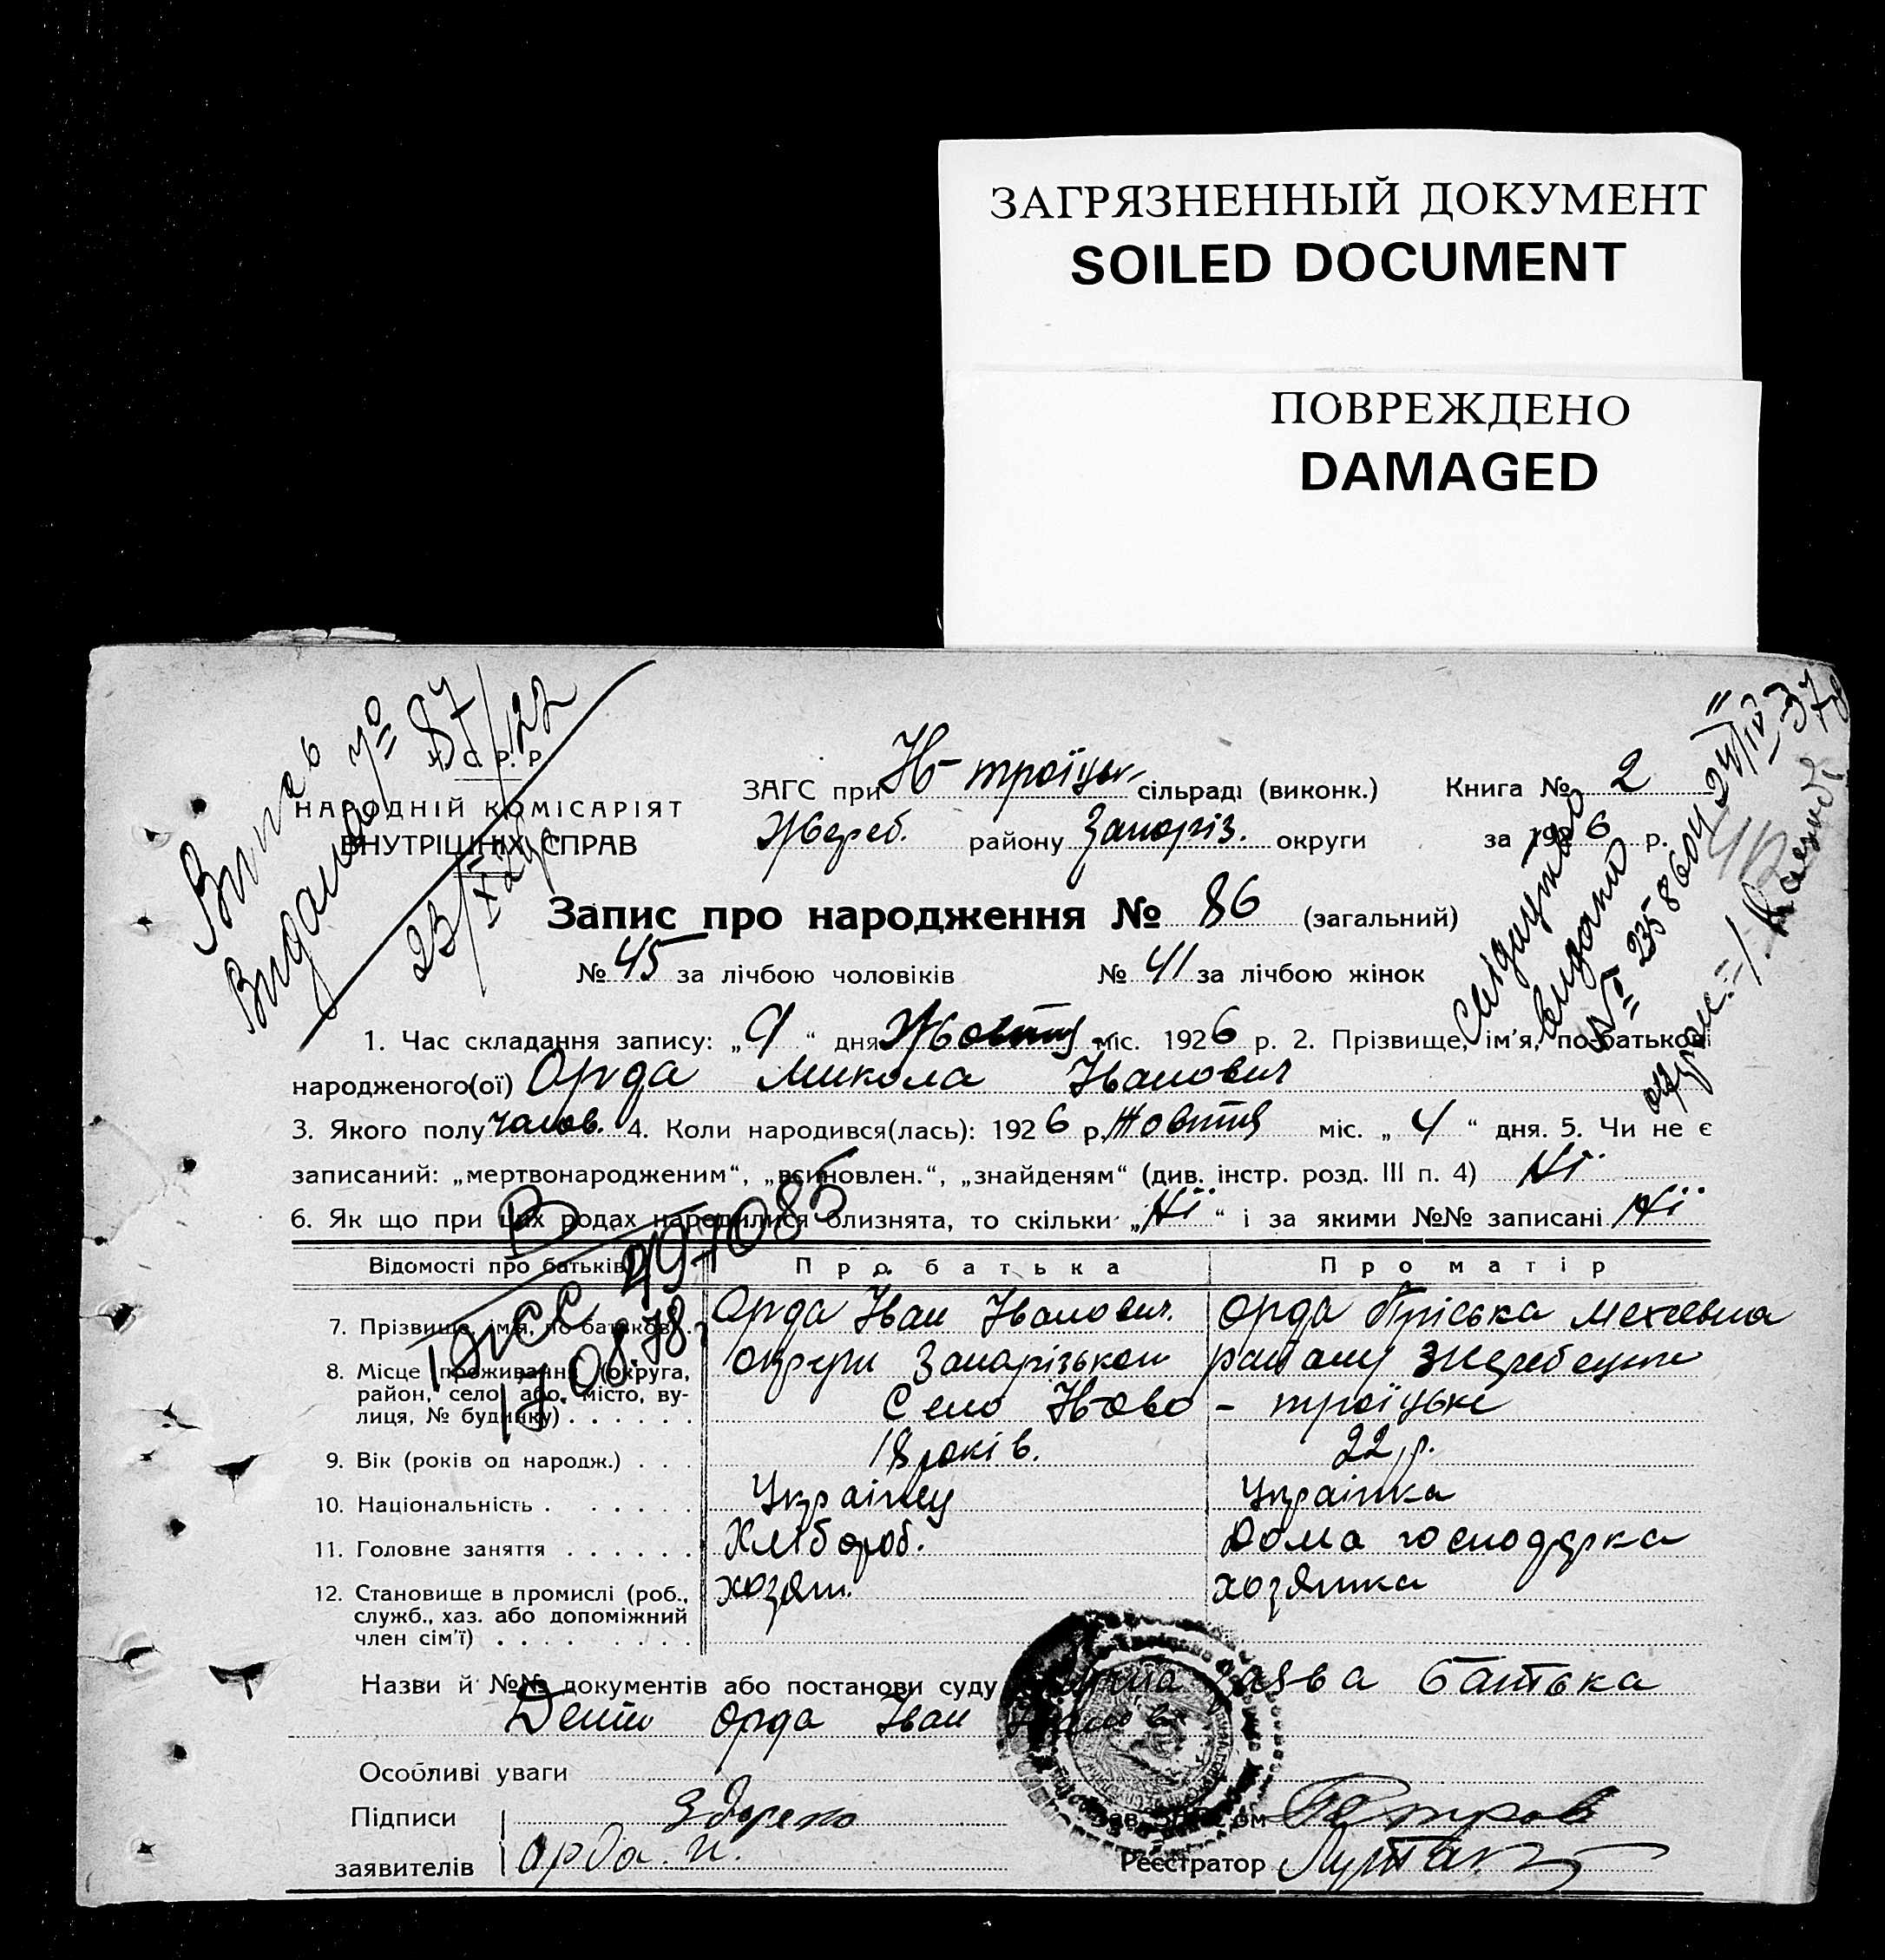 ЗАГРЯЗНЕННЫЙ ДОКУМЕНТ
SOILED DOCUMENT
ПОВРЕЖДЕНО
DAMAGED
Випись
Видана № 87/122
С. Р. Р.
НАРОДНІЙ КОМІСАРІЯТ
ВНУТРІШНІХ СПРАВ
23/X
ЗАГС при Н-троїцьк сільраді (виконк.) Книга № 2
Жереб. району Запоріз. округи за 1926 р.
Свідицтво
видано
№ 2358604 24/IV-37
Запис про народження № 86 (загальний)
№ 45 за лічбою чоловіків № 41 за лічбою жінок
1. Час складання запису: „9“ дня Жовтня міс. 1926 р. 2. Прізвище, ім'я, по-батькові
народженого(ої) Орда Микола Іванович
3. Якого полу чолов. 4. Коли народився(лась): 1926 р. Жовтня міс. „4“ дня. 5. Чи не є
записаний: „мертвонародженим“, „всиновлен.“, „знайденям“ (див. інстр. розд. III п. 4) Ні
6. Як що при цих родах народилися близнята, то скільки „Ні“ і за якими №№ записані Ні
Відомості про батьків Про батька Про матір
7. Прізвище, ім'я, по батькові . Орда Іван Іванович. Орда Пріська Мехеевна
8. Місце проживання (округа, округи Запорізькои району Жеребецьки
район, село або місто, ву- Село Ново - троїцьке
лиця, № будинку) . . . . . .
9. Вік (років од народж.) . . . 18 років. 22 р.
10. Національність . . . . . . Українец Українка
11. Головне заняття . . . . . . Хлібороб. Дома господарка
12. Становище в промислі (роб., хозяин. хозяйка
служб., хаз. або допоміжний
член сім'ї) . . . . . . . .
Назви й №№ документів або постанови суду заява батька
Орда Іван
Особливі уваги
Підписи Зав. ЗАГС'ом Петров
заявителів Орда. И. Реєстратор